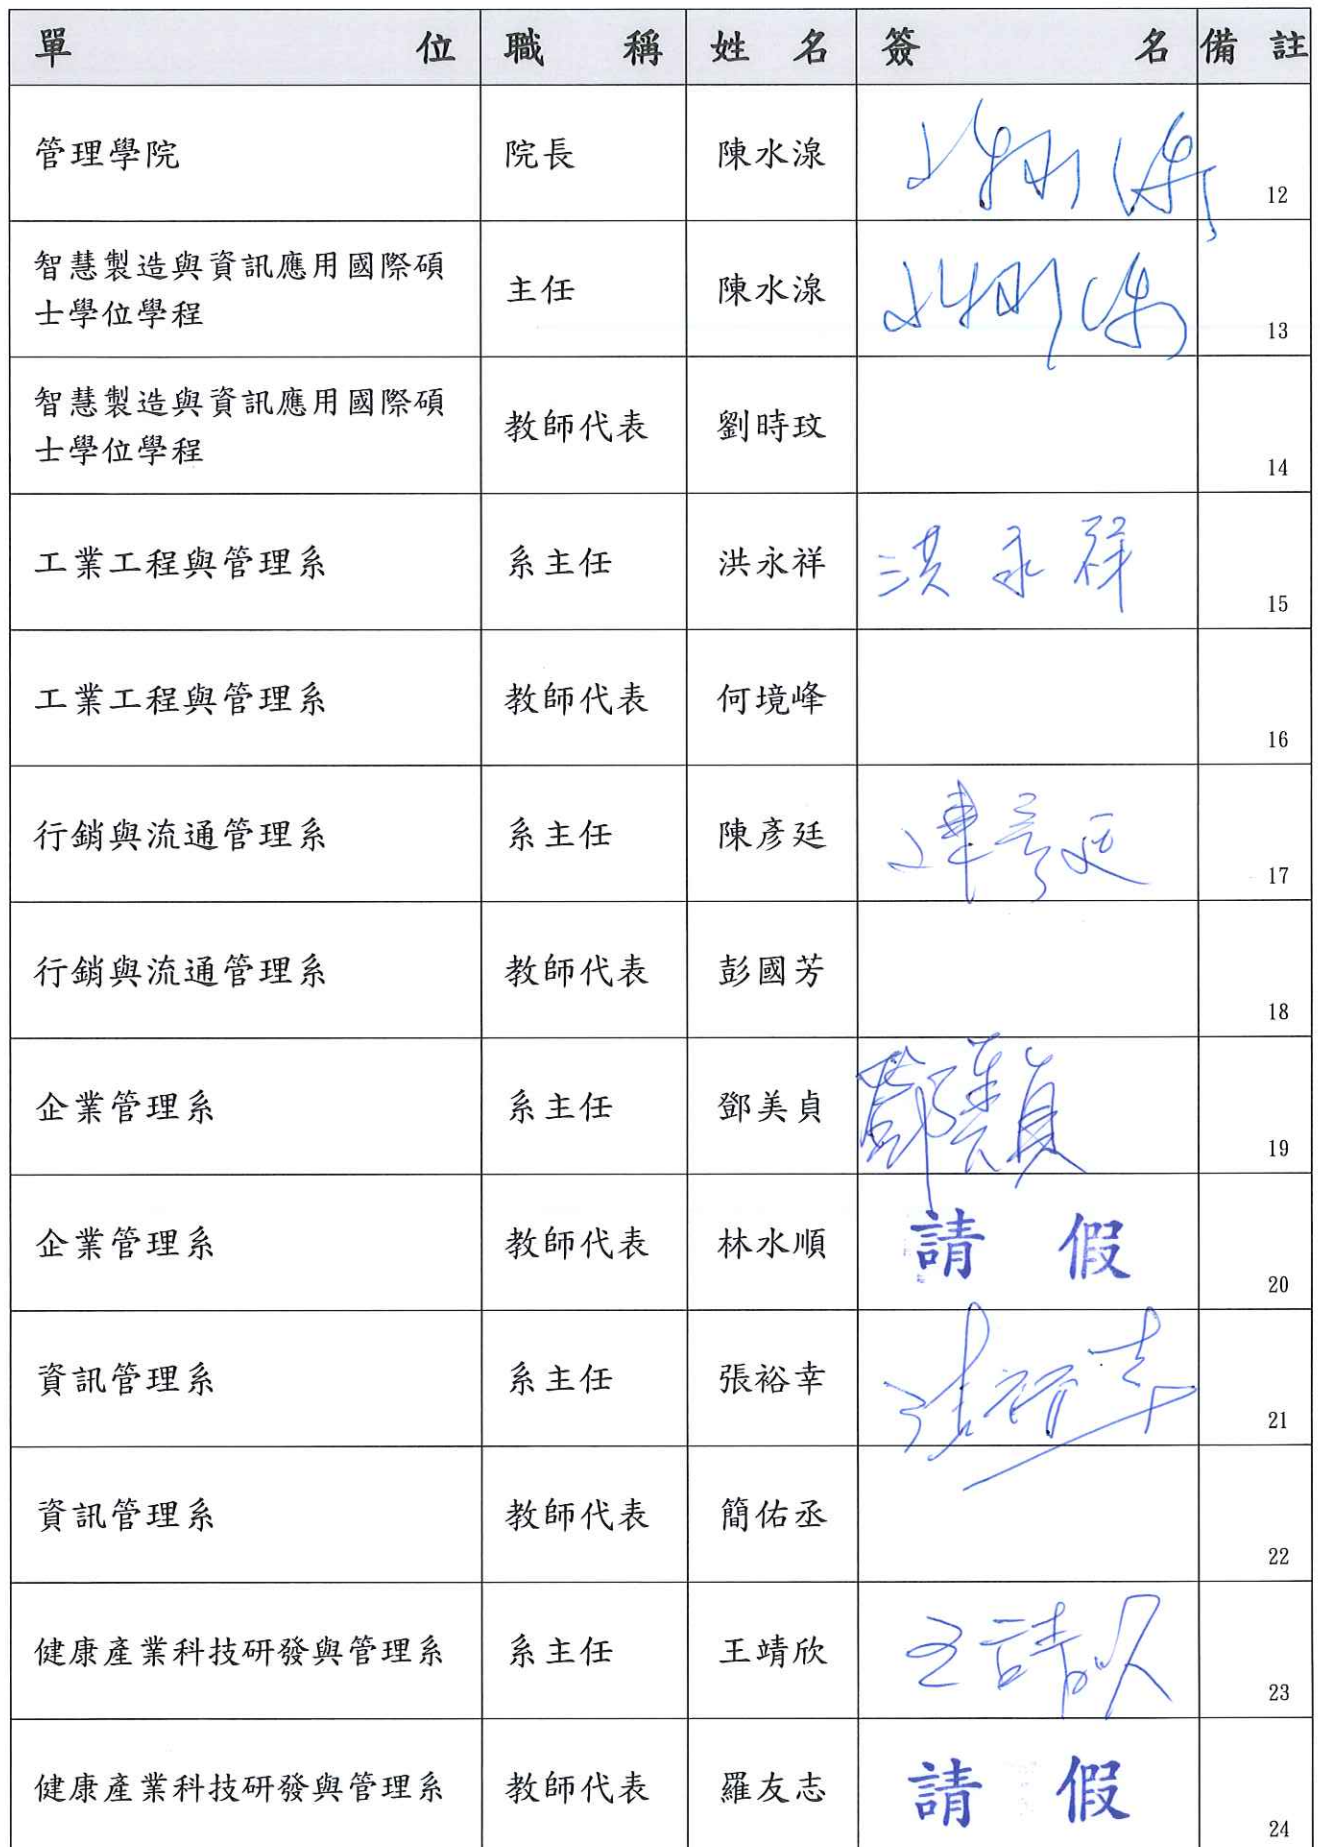 單位 職稱 姓名 簽名 備註
管理學院 院長 陳水湶 12
智慧製造與資訊應用國際碩
士學位學程 主任 陳水湶 13
智慧製造與資訊應用國際碩
士學位學程 教師代表 劉時玟 14
工業工程與管理系 系主任 洪永祥 洪永祥 15
工業工程與管理系 教師代表 何境峰 16
行銷與流通管理系 系主任 陳彥廷 陳彥廷 17
行銷與流通管理系 教師代表 彭國芳 18
企業管理系 系主任 鄧美貞 鄧美貞 19
企業管理系 教師代表 林水順 請假 20
資訊管理系 系主任 張裕幸 張裕幸 21
資訊管理系 教師代表 簡佑丞 22
健康產業科技研發與管理系 系主任 王靖欣 王靖欣 23
健康產業科技研發與管理系 教師代表 羅友志 請假 24